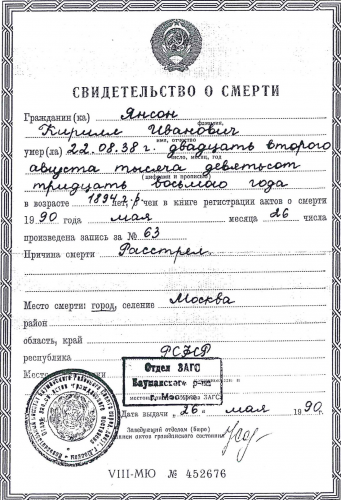 СВИДЕТЕЛЬСТВО О СМЕРТИ
Гражданин (ка) Янсон
фамилия,
Кирилл Иванович
имя, отчество
умер (ла) 22.08.38 г. двадцать второго
число, месяц, год
августа тысяча девятьсот
(цифрами и прописью)
тридцать восьмого года
в возрасте 1894 г.р. лет, о чем в книге регистрации актов о смерти
1990 года мая месяца 26 числа
произведена запись за № 63
Причина смерти Расстрел.
Место смерти: город, селение Москва
район
область, край
республика РСФСР
Место
Отдел ЗАГС
Бауманского р-на
г. Москвы
ЗАГС
Дата выдачи „26" мая 1990.
Заведующий отделом (бюро)
записи актов гражданского состояния
VIII-МЮ № 452676